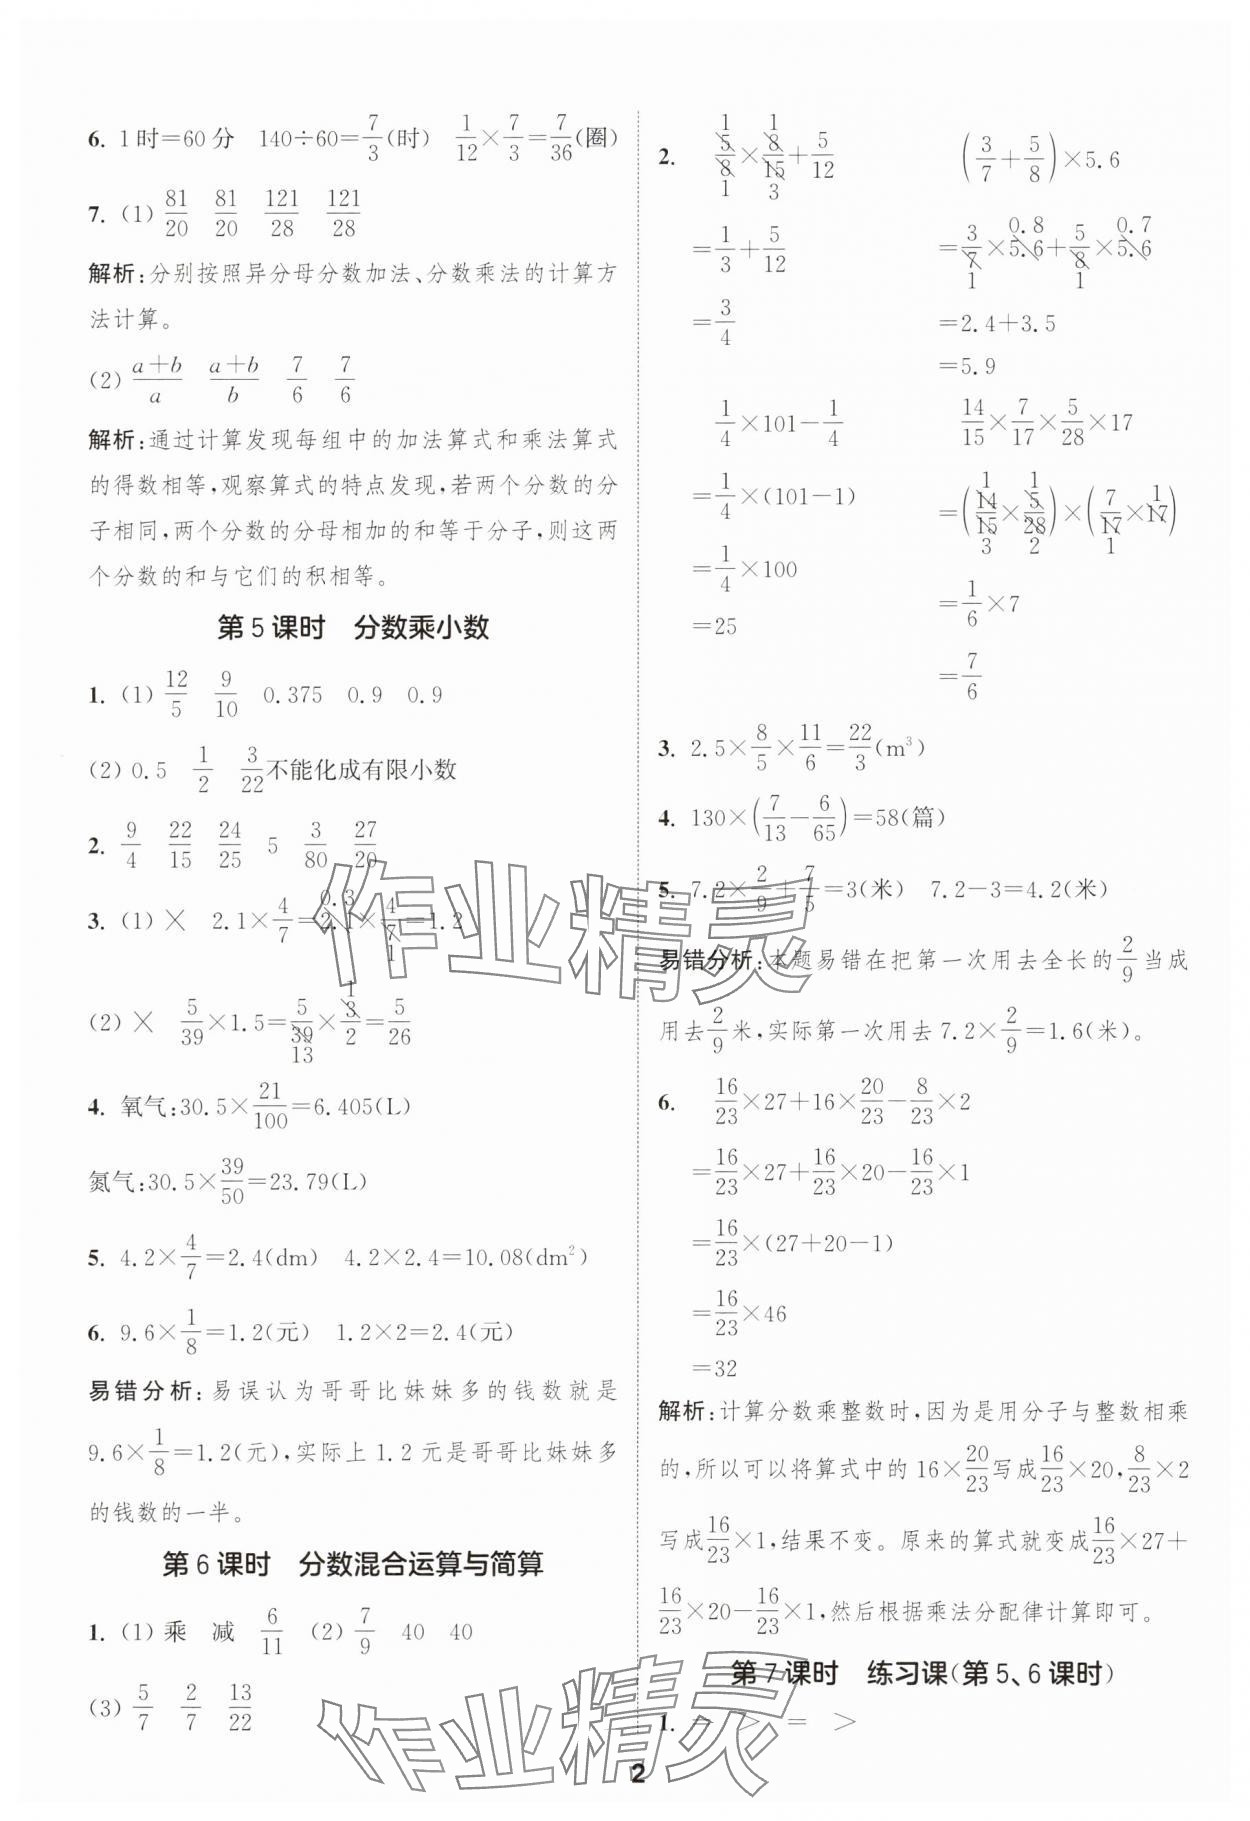 6. 1时=60分 140÷60=7/3(时) 1/12×7/3=7/36(圈)
7. (1) 81/20 81/20 121/28 121/28
解析:分别按照异分母分数加法、分数乘法的计算方
法计算。
(2) (a+b)/a (a+b)/b 7/6 7/6
解析:通过计算发现每组中的加法算式和乘法算式
的得数相等,观察算式的特点发现,若两个分数的分
子相同,两个分数的分母相加的和等于分子,则这两
个分数的和与它们的积相等。
第5课时 分数乘小数
1. (1) 12/5 9/10 0.375 0.9 0.9
(2) 0.5 1/2 3/22不能化成有限小数
2. 9/4 22/15 24/25 5 3/80 27/20
3. (1) × 2.1×4/7=2.1(0.3)×4/7(1)=1.2
(2) × 5/39×1.5=5/39(13)×3(1)/2=5/26
4. 氧气:30.5×21/100=6.405(L)
氮气:30.5×39/50=23.79(L)
5. 4.2×4/7=2.4(dm) 4.2×2.4=10.08(dm²)
6. 9.6×1/8=1.2(元) 1.2×2=2.4(元)
易错分析:易误认为哥哥比妹妹多的钱数就是
9.6×1/8=1.2(元),实际上1.2元是哥哥比妹妹多
的钱数的一半。
第6课时 分数混合运算与简算
1. (1) 乘 减 6/11 (2) 7/9 40 40
(3) 5/7 2/7 13/22
2. 5(1)/8(1)×8(1)/15(3)+5/12
=1/3+5/12
=3/4
(3/7+5/8)×5.6
=3/7(1)×5.6(0.8)+5/8(1)×5.6(0.7)
=2.4+3.5
=5.9
1/4×101-1/4
=1/4×(101-1)
=1/4×100
=25
14/15×7/17×5/28×17
=(14(1)/15(3)×5(1)/28(2))×(7/17(1)×17(1))
=1/6×7
=7/6
3. 2.5×8/5×11/6=22/3(m³)
4. 130×(7/13-6/65)=58(篇)
5. 7.2×2/9+7/5=3(米) 7.2-3=4.2(米)
易错分析:本题易错在把第一次用去全长的2/9当成
用去2/9米,实际第一次用去7.2×2/9=1.6(米)。
6. 16/23×27+16×20/23-8/23×2
=16/23×27+16/23×20-16/23×1
=16/23×(27+20-1)
=16/23×46
=32
解析:计算分数乘整数时,因为是用分子与整数相乘
的,所以可以将算式中的16×20/23写成16/23×20,8/23×2
写成16/23×1,结果不变。原来的算式就变成16/23×27+
16/23×20-16/23×1,然后根据乘法分配律计算即可。
第7课时 练习课(第5、6课时)
1. = > = >
2
作业精灵
作业精灵